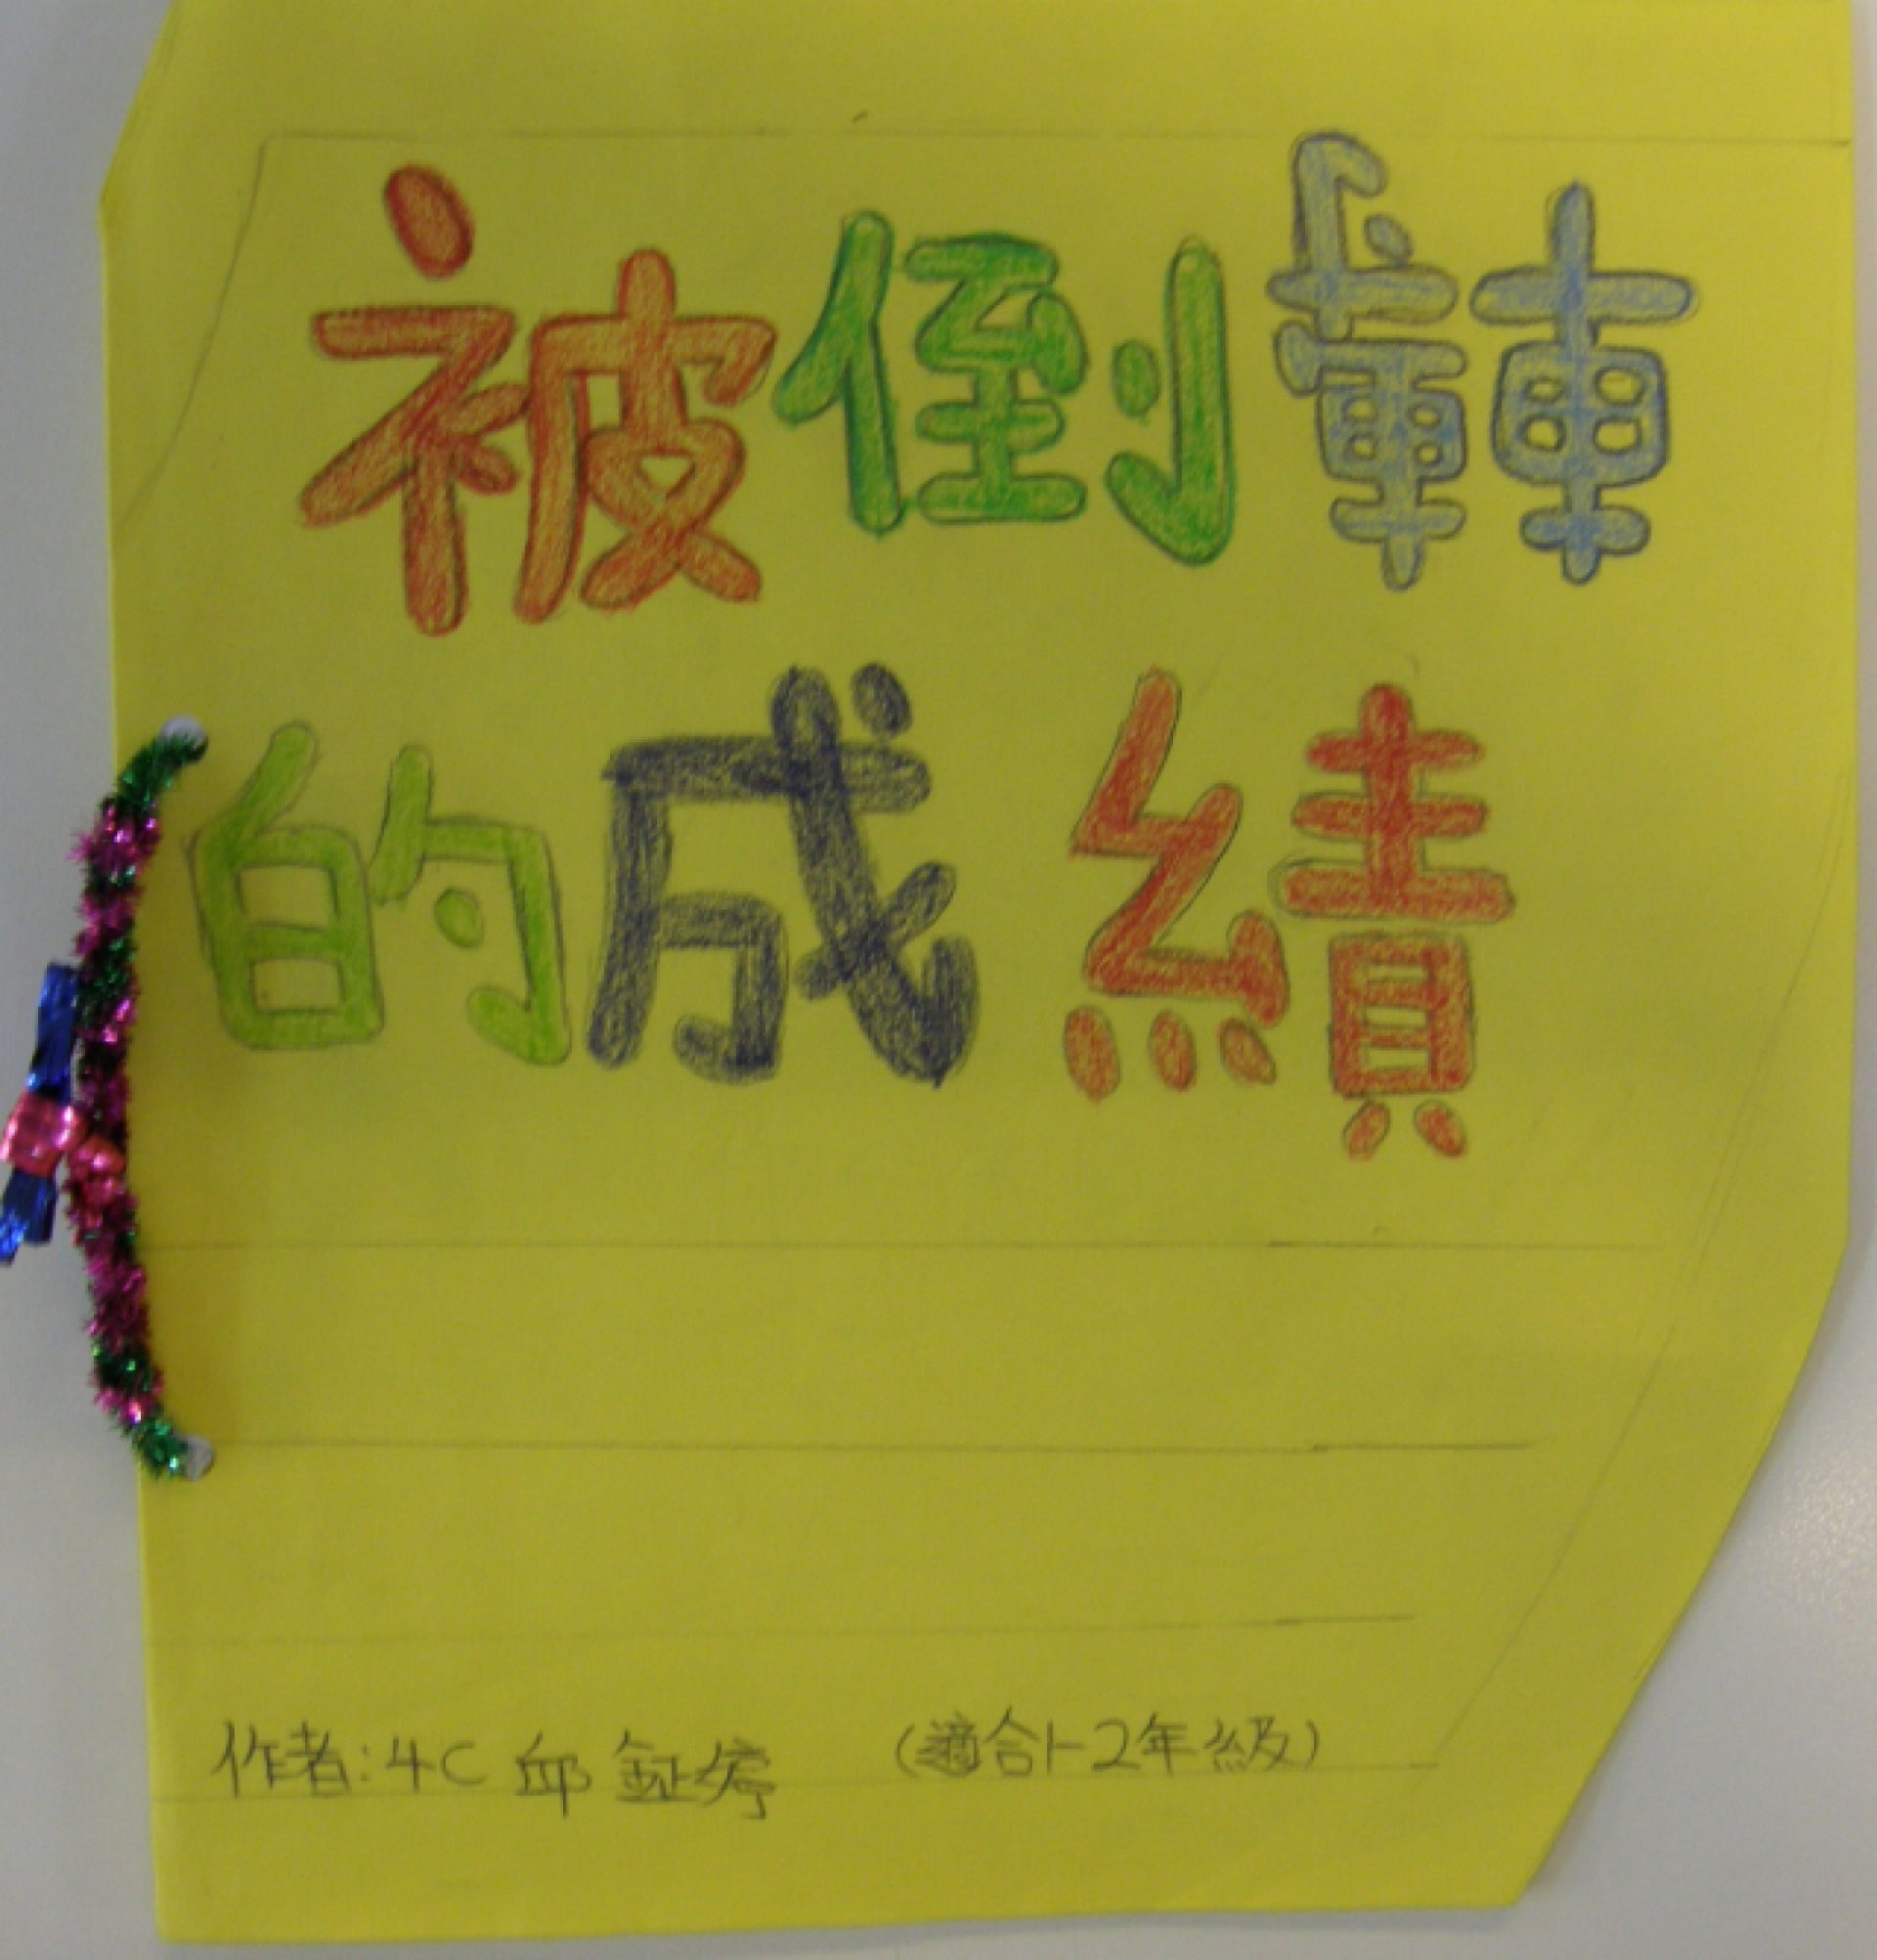 被倒轉
的成績
作者:4C 邱鉦婷 (適合1-2年級)